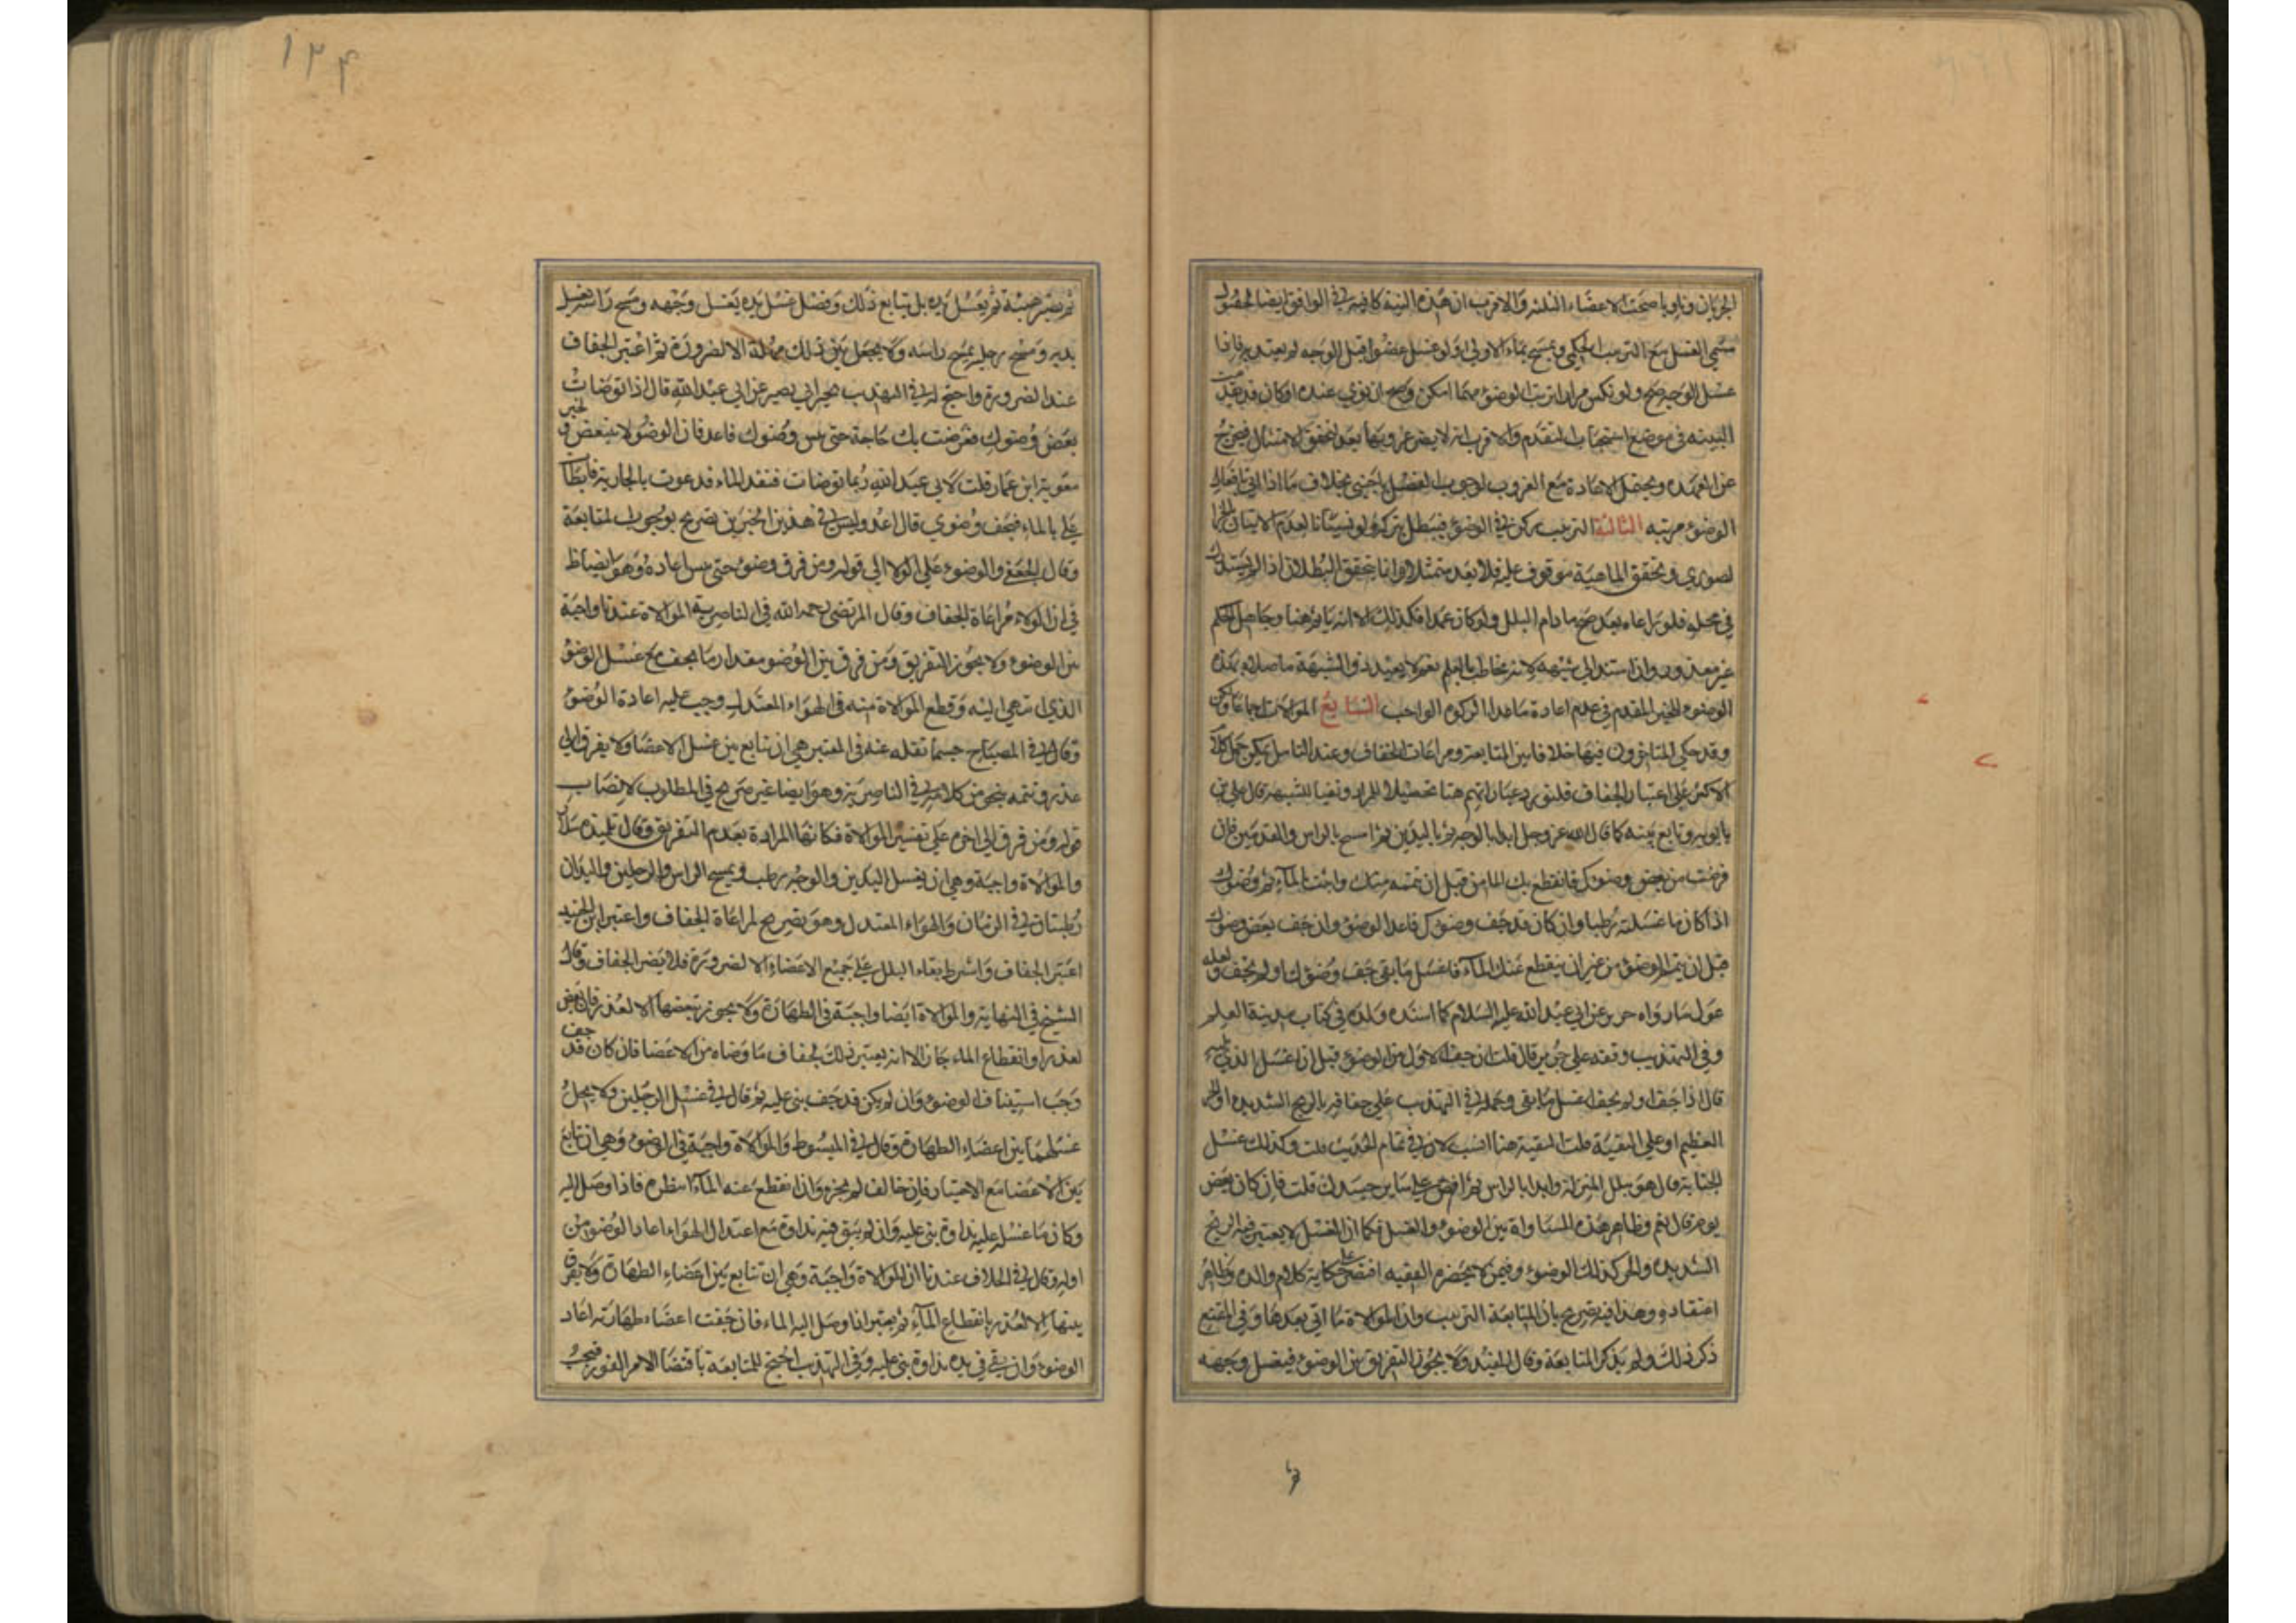 الجريان وناويا صحت الاعضاء الثلثه والاقرب ان هذه النية كافية في الواقع ايضا لحصول
مسمى الغسل مع الترتيب الحكمي ويمسح بماء الاولى ولو غسل عضوا قبل الوجه لم يعتد به فاذا
غسل الوجه صح ولو نكس مرارا ترتب الوضوء مهما امكن وصح ان نوى عنده او كان قد تقدمت
النية في موضع استحباب التقدم والاقرب انه لا يضر عزوبها بعد لتحقق الامتثال فيخرج
عن العهدة ويحتمل الاعادة مع العزوب لوجوب الفصل باجنبي بخلاف ما اذا اتى بافعال
الوضوء مرتبه الثالثة الترتيب ركن في الوضوء فيبطل بتركه ولو نسيانا لعدم الاتيان بالجزء
لصوري وتحقق الماهية موقوف عليه فلا يعد ممتثلا وانما يتحقق البطلان اذا لم يستدرك
في محله فلو راعاه بعد صح ما دام البلل ولو كان عمدا فكذلك الا انه ياثم هنا وجاهل الحكم
غير معذور وان استند الى شبهة لانه مخاطب بالعلم نعم لا يعيد ذو الشبهة ما صلاه بهذا
الوضوء للخبر المقدم في عدم اعادة ما عدا الزكوة الواجب السابع الموالات اجماعا ولكن
وقد حكى المتاخرون فيها خلافا بين المتابعة ومراعات الجفاف وعند التامل يمكن حمل كلام
الاكثر على اعتبار الجفاف فلنورد عباراتهم هنا تحصيلا للمراد ونفيا للشبهة قال علي بن
بابويه وتابع بينه كما قال الله عز وجل ابدا بالوجه ثم باليدين ثم امسح بالراس والقدمين فان
فرغت من بعض وضوئك فانقطع بك الماء من قبل ان تتمه وتيت واجئت بالماء فتم وضوئك
اذا كان ما غسلته رطبا وان كان قد جف وضوئك فاعد الوضوء وان جف بعض وضوئك
قبل ان يتم الوضوء من غير ان ينقطع عنك الماء فاغسل ما بقى جف وضوئك او لم يجف ولعله
عول على ما رواه حريز عن ابي عبد الله عليه السلام كما اسنده ولده في كتاب مدينة العلم
وفي التهذيب وقفه على حريز قال قلت ان جف الاول من الوضوء قبل ان اغسل الذي يليه
قال اذا جف او لم يجف اغسل ما بقى وحمله في التهذيب على جفافه بالريح الشديدة او الحر
العظيم او على التقية قلت التقية هنا انسب لان في تمام الحديث قلت وكذلك غسل
الجنابة قال هو بتلك المنزلة وابدا بالراس ثم افض على ساير جسدك قلت فان كان بعض
يوم قال نعم وظاهر هذه المساواة بين الوضوء والغسل فكما ان الغسل لا يعتبر فيه الريح
الشديدة والحر كذلك الوضوء وفيمن لا يحضره الفقيه اقتصر على حكاية كلام والده وظاهره
اعتقاده وهذا فيه تصريح بان المتابعة الترتيب وان الموالاة ما اتى بعدها وفي المقنع
ذكر ذلك ولم يذكر المتابعة وقال المفيد ولا يجوز التفريق بين الوضوء فيغسل وجهه
ثم يصبر هنيئة ثم يغسل يده بل يتابع ذلك وصل غسل يده بغسل وجهه ومسح راسه بغسل
يديه ومسح رجليه بمسح راسه ولا يجعل بين ذلك مهلة الا لضرورة ثم اعتبر الجفاف
عند الضرورة واحتج له في التهذيب بخبر ابي بصير عن ابي عبد الله قال اذا توضات
بعض وضوئك فعرضت بك حاجة حتى يبس وضوئك فاعد فان الوضوء لا يتبعض وخبر
معوية ابن عمار قلت لابي عبد الله ربما توضات فنفد الماء فدعوت بالجارية فابطات
علي بالماء فيجف وضوئي قال اعد وليس في هذين الخبرين تصريح بوجوب المتابعة
وقال الجعفي والوضوء على الولا الى قوله ومن فرق وضوءه حتى يبس اعاده وهو ايضا ظاهر
في ان الولاء مراعاة الجفاف وقال المرتضى رحمه الله في الناصرية الموالاة عندنا واجبة
بين الوضوء ولا يجوز التفريق ومن فرق بين الوضوء مقدار ما يجف معه غسل الوضوء
الذي انتهى اليه وقطع الموالاة منه في الهواء المعتدل وجب عليه اعادة الوضوء
وقال في المصباح حسبما نقله عنه في المعتبر هي ان تتابع بين غسل الاعضاء ولا يفرق الا
عذر وتتمه بنحو من كلامه في الناصرية وهو ايضا غير صريح في المطلوب لانصاب
قوله ومن فرق الى اخره على تفسير الموالاة فكانها المرادة بعدم التفريق وقال تلميذه سلار
والموالاة واجبة وهي ان يغسل اليدين والوجه رطب ويمسح الراس والرجلين واليدان
رطبتان في الزمان والهواء المعتدل وهو تصريح لمراعاة الجفاف واعتبر ابن الجنيد
اعتبر الجفاف واشترط بقاء البلل على جميع الاعضاء الا لضرورة فلا يضر الجفاف وقال
الشيخ في النهاية والموالاة ايضا واجبة في الطهارة ولا يجوز تبعيضها الا لعذر فان بعض
لعذر او انقطاع الماء جاز الا انه يعتبر ذلك بجفاف ما وضاه من الاعضا فان كان قد جف
وجب استيناف الوضوء وان لم يكن قد جف بنى عليه ثم قال في غسل الرجلين ولا يجعل
غسلهما بين اعضاء الطهارة وقال في المبسوط والموالاة واجبة في الوضوء وهي ان تتابع
بين الاعضا مع الاختيار فان خالف لم يجزه وان انقطع عنه الماء انتظره فاذا وصل اليه
وكان ما غسله عليه نداوة بنى عليه وان لم يبق فيه نداوة مع اعتدال الهواء اعاد الوضوء من
اوله وقال في الخلاف عندنا ان الموالاة واجبة وهي ان تتابع بين اعضاء الطهارة ولا يفرق
بينها الا لعذر بانقطاع الماء ثم يعتبر اذا وصل اليه الماء فان جفت اعضاء طهارته اعاد
الوضوء وان بقى في يده نداوة بنى عليه وفي التهذيب احتج للمتابعة باقتضا الامر الفور فيجب
١٣٤